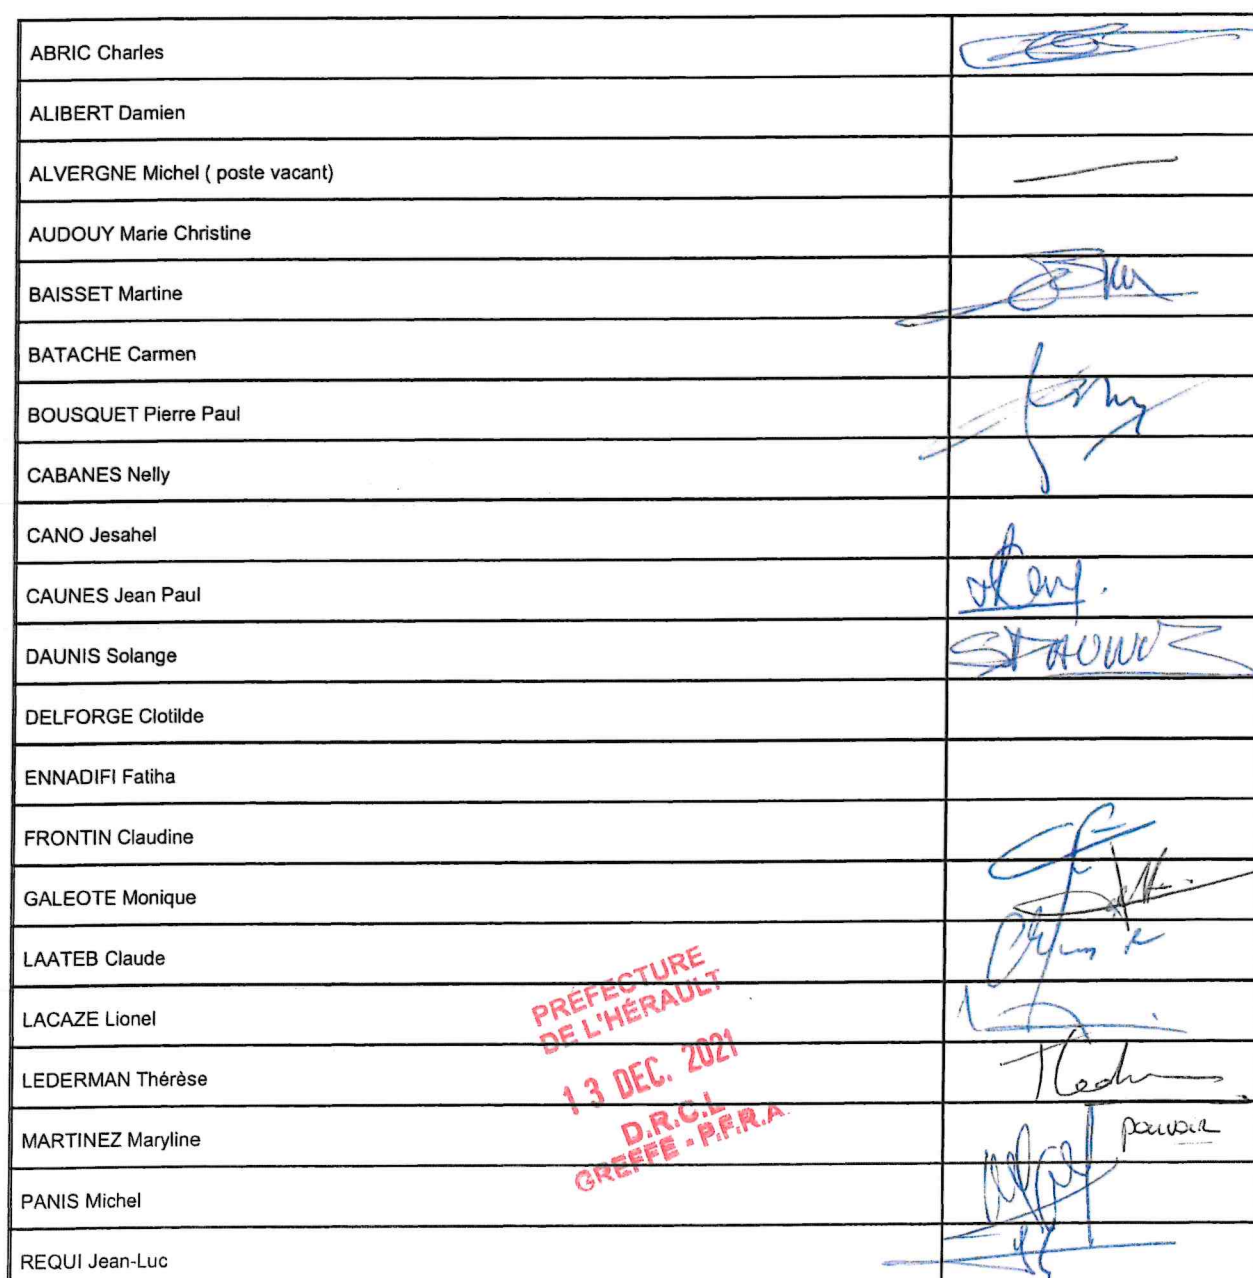 ABRIC Charles
ALIBERT Damien
ALVERGNE Michel ( poste vacant)
AUDOUY Marie Christine
BAISSET Martine
BATACHE Carmen
BOUSQUET Pierre Paul
CABANES Nelly
CANO Jesahel
CAUNES Jean Paul
DAUNIS Solange
DELFORGE Clotilde
ENNADIFI Fatiha
FRONTIN Claudine
GALEOTE Monique
LAATEB Claude
LACAZE Lionel
LEDERMAN Thérèse
MARTINEZ Maryline pouvoir
PANIS Michel
REQUI Jean-Luc
PRÉFECTURE
DE L'HÉRAULT
13 DEC. 2021
D.R.C.L
GREFFE - P.F.R.A